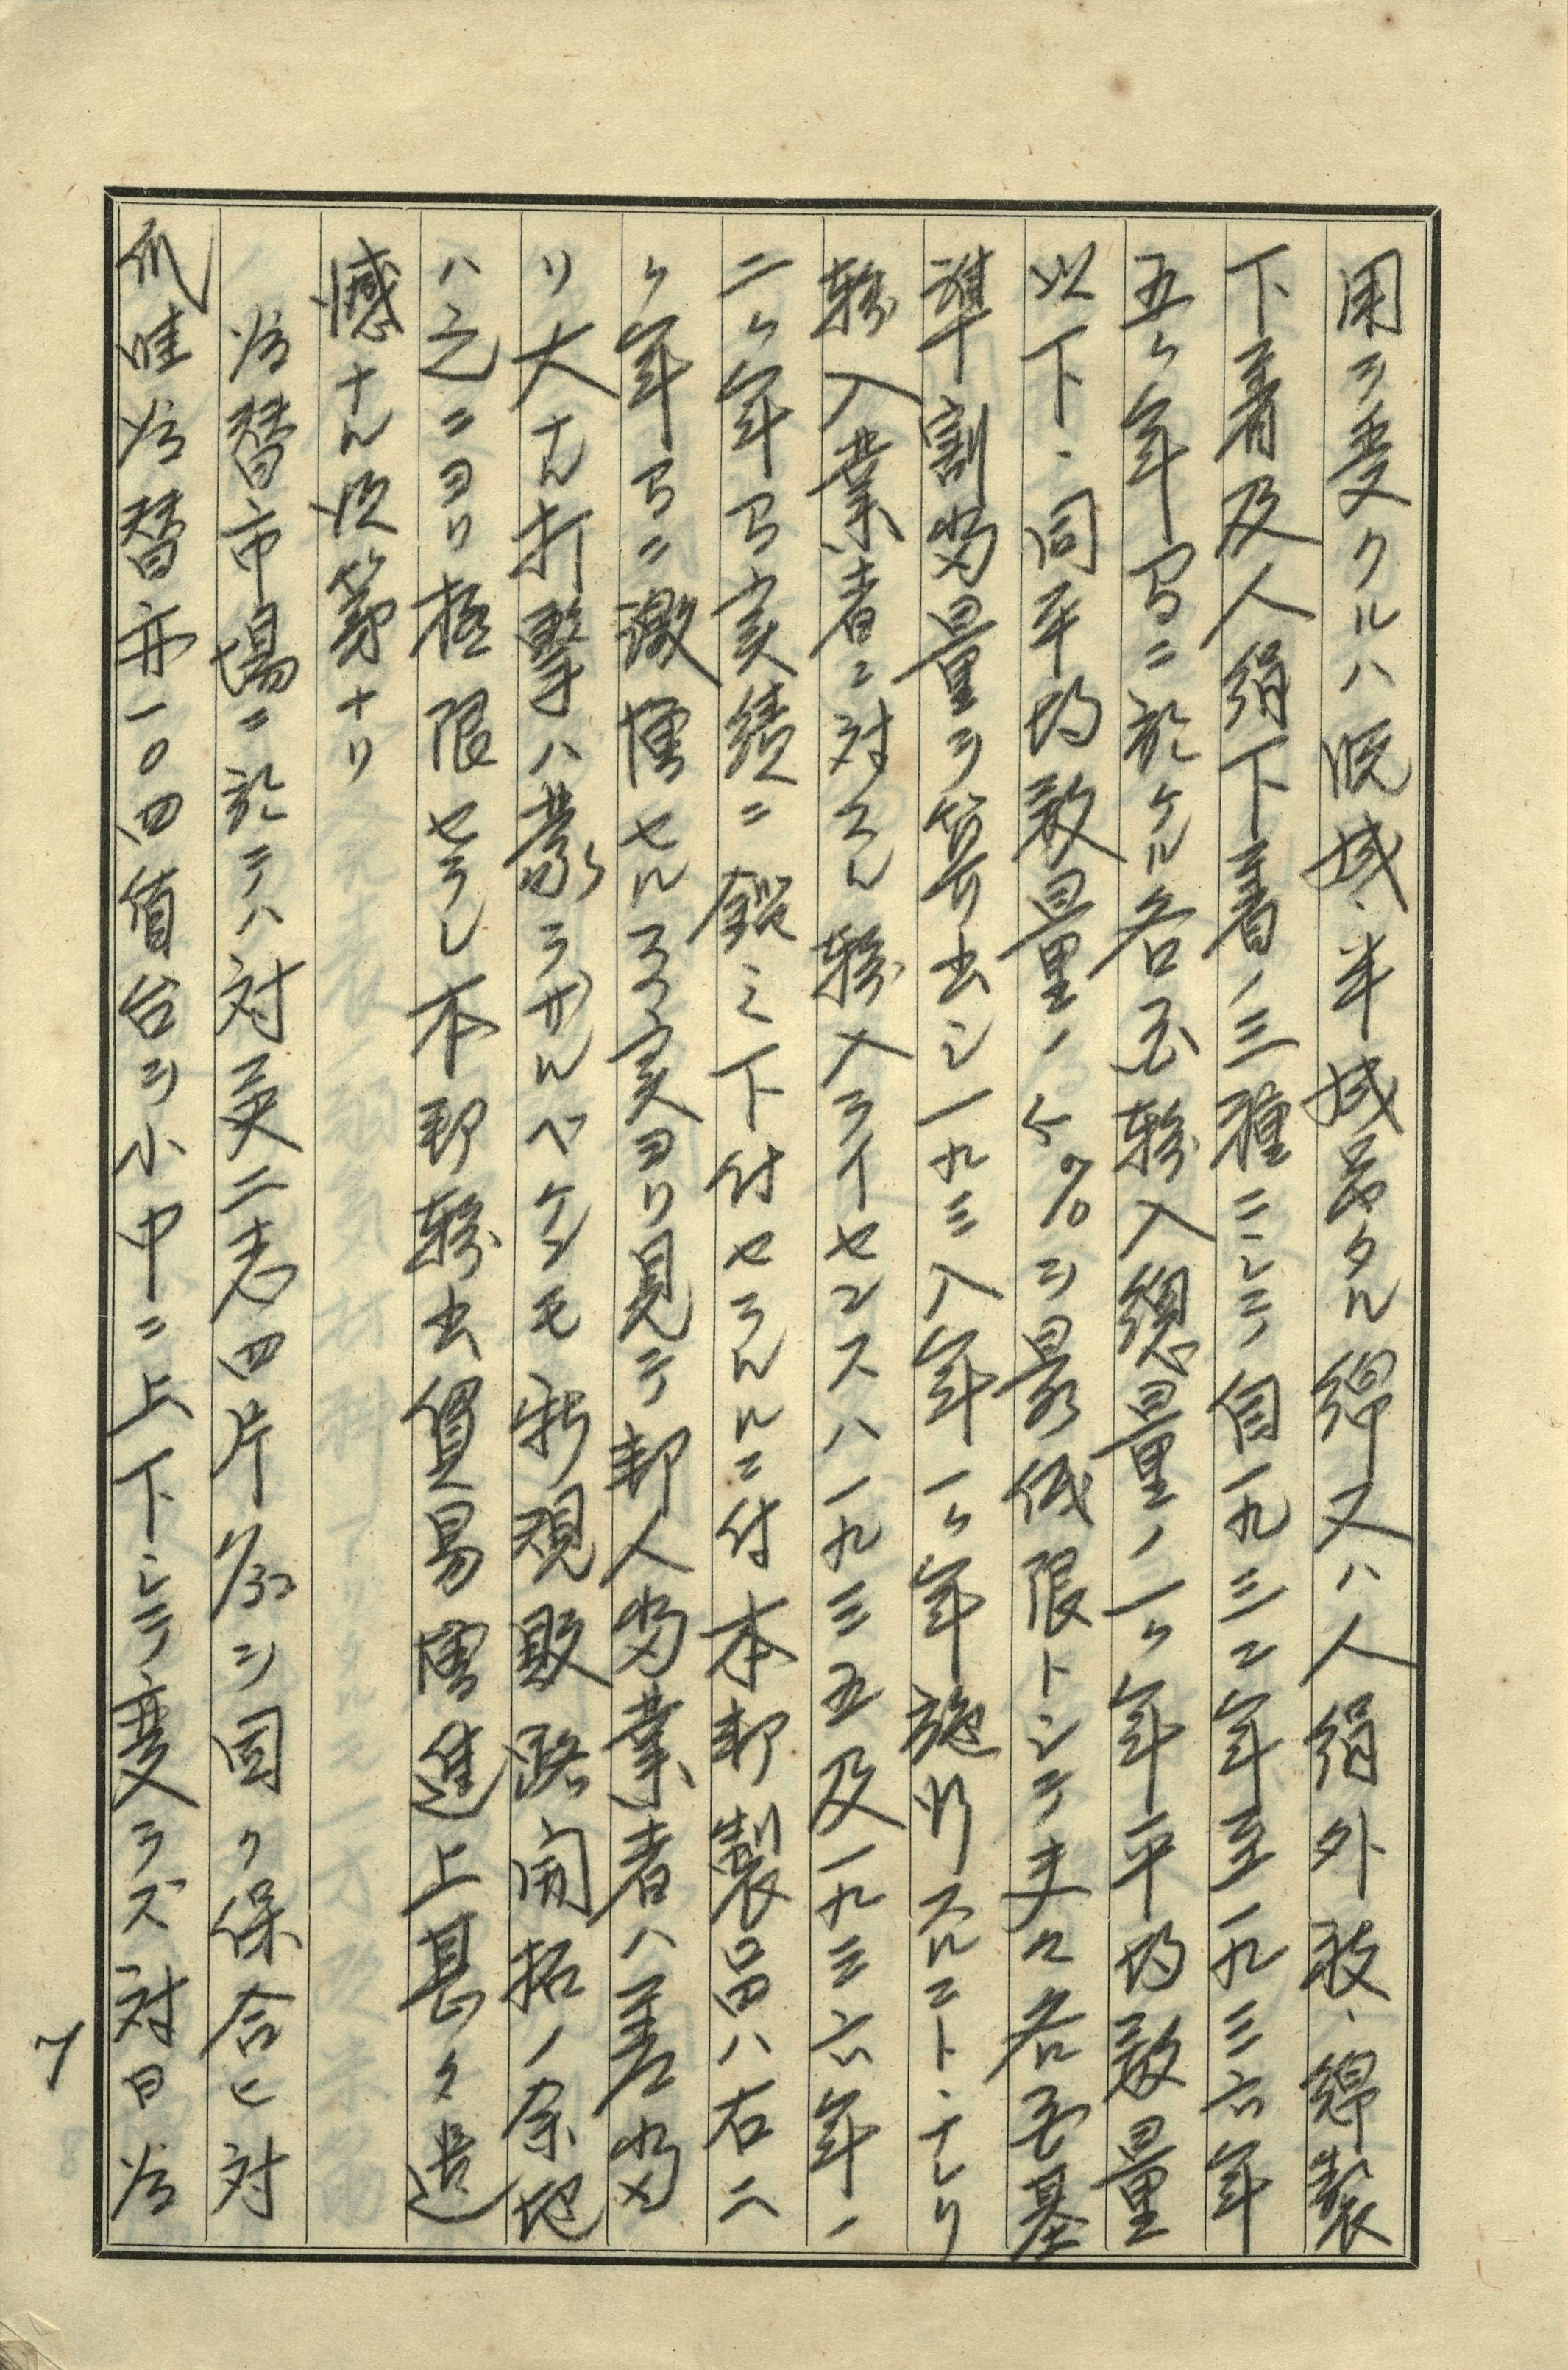 用ヲ受クルハ既成、半成品タル綿又ハ人絹外衣、綿製
下着及人絹下着ノ三種ニシテ自一九三二年至一九三六年
五ヶ年間ニ於ケル各国輸入總量ノ一ヶ年平均数量
以下、同平均数量ノ %ヲ最低限トシテ夫々各国基
準割当量ヲ算出シ一九三八年一ヶ年施行スルコトヽナレリ
輸入業者ニ対スル輸入ライセンスハ一九三五及一九三六年ノ
二ヶ年間実績ニ鑑ミ下付セラルルニ付本邦製品ハ右二
ヶ年間ニ激増セル事実ヨリ見テ邦人当業者ハ差当
リ大ナル打撃ハ蒙ラザルベケンモ新規販路開拓ノ余地
ハ之ニヨリ極限セラレ本邦輸出貿易増進上甚タ遺
憾ナル次第ナリ
為替市場ニ於テハ対英二志四片 ヲ固ク保合ヒ対
爪哇為替亦一〇四値台ヲ小中ニ上下シテ変ラズ対日為
7